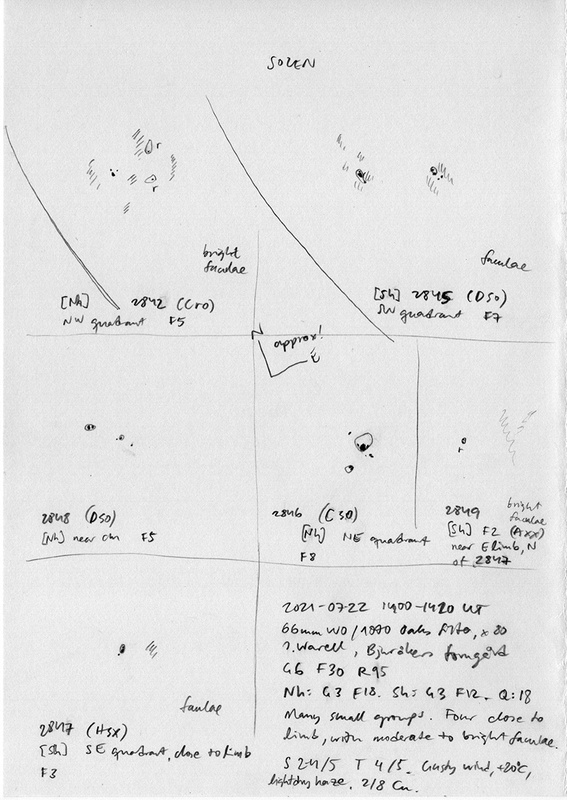 SOLEN
bright
faculae
[Nh] 2842 (Cro)
NW quadrant F5
faculae
[Sh] 2845 (Dso)
SW quadrant F7
N
approx!
2848 (Dso)
[Nh] near cm F5
2846 (Cso)
[Nh] NE quadrant
F8
2849
bright
faculae
[Sh] F2 (Axx)
near E limb, N
of 2847
faculae
2847 (Hsx)
[Sh] SE quadrant, close to limb
F3
2021-07-22 1400-1420 UT
66mm WO / 1070 Oaks, x80
J. Warell, Bjuråkers forngård
G6 F30 R95
Nh: G3 F18. Sh: G3 F12. Q: 18
Many small groups. Four close to
limb, with moderate to bright faculae.
T 4/5. Gusty wind, +20°C,
haze. 2/8 Cu.